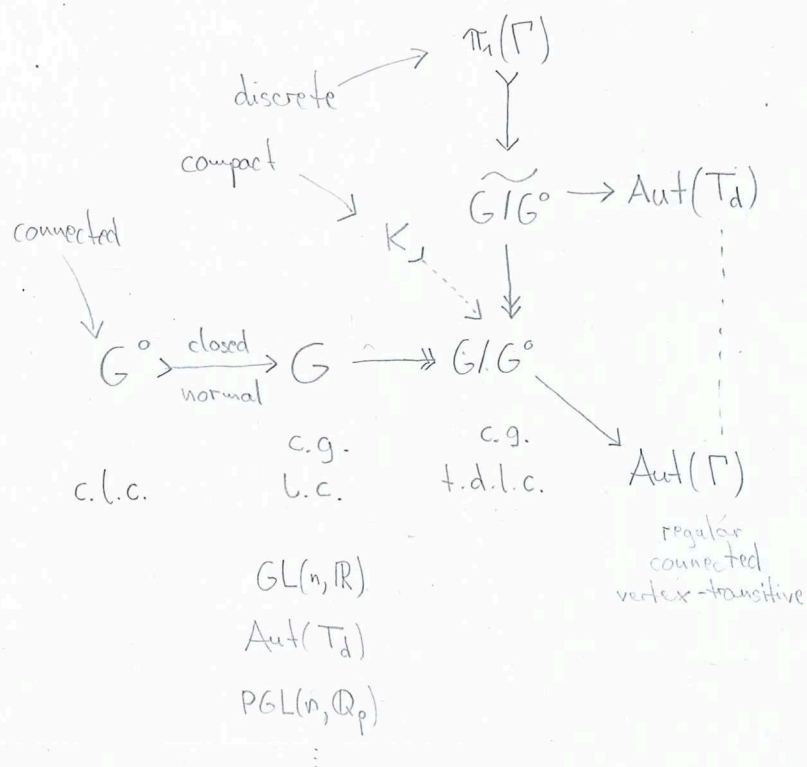 π₁(Γ)
discrete
compact
G/G° → Aut(T_d)
connected
K
closed
G° G G/G°
normal
c.g. c.g.
c.l.c. l.c. t.d.l.c. Aut(Γ)
regular
connected
vertex-transitive
GL(n,ℝ)
Aut(T_d)
PGL(n,ℚ_p)
⋮